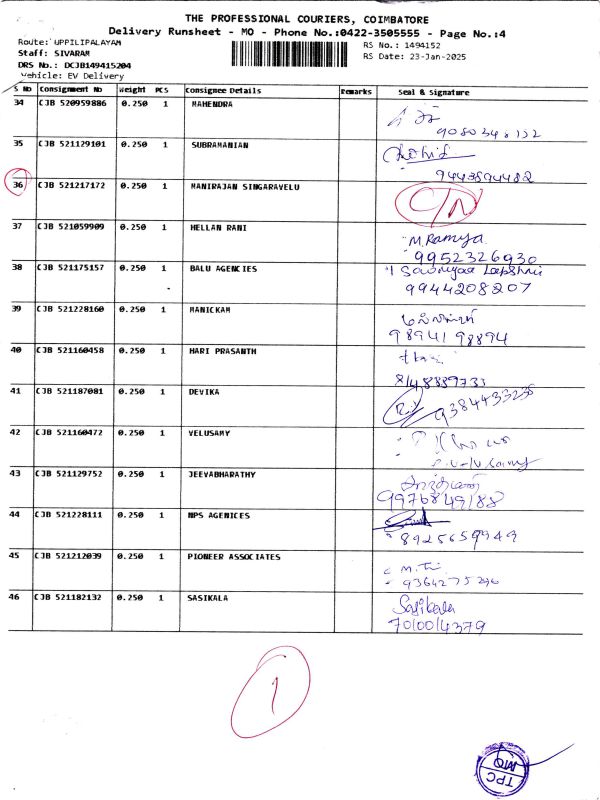 THE PROFESSIONAL COURIERS, COIMBATORE
Delivery Runsheet - MO - Phone No.:0422-3505555 - Page No.:4
Route: UPPILIPALAYAM
Staff: SIVARAM
DRS No.: DCJB149415204
Vehicle: EV Delivery
RS No.: 1494152
RS Date: 23-Jan-2025
S No Consignment No Weight PCS Consignee Details Remarks Seal & Signature
34 CJB 520959886 0.250 1 MAHENDRA
35 CJB 521129101 0.250 1 SUBRAMANIAN
9443894482
36 CJB 521217172 0.250 1 MANIRAJAN SINGARAVELU
37 CJB 521059909 0.250 1 HELLAN RANI
M. Ramya
9952326930
38 CJB 521175157 0.250 1 BALU AGENCIES
9944208207
39 CJB 521228160 0.250 1 MANICKAM
9894198894
40 CJB 521160458 0.250 1 HARI PRASANTH
8148889733
41 CJB 521187081 0.250 1 DEVIKA
9384433236
42 CJB 521160472 0.250 1 VELUSAMY
43 CJB 521129752 0.250 1 JEEVABHARATHY
9976849188
44 CJB 521228111 0.250 1 NPS AGENICES
8925659949
45 CJB 521212039 0.250 1 PIONEER ASSOCIATES
46 CJB 521182132 0.250 1 SASIKALA
Sasikala
7010014379
1
TPC
MTQ